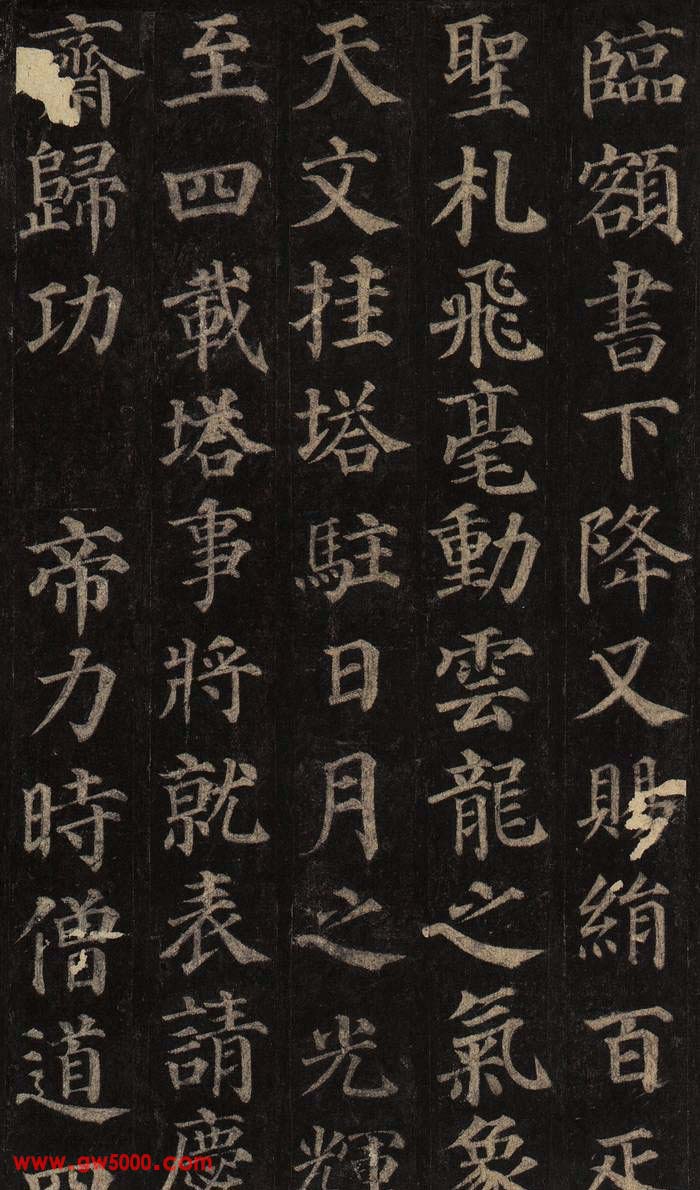 臨額書下降又賜絹百疋
聖札飛毫動雲龍之氣象
天文挂塔駐日月之光輝
至四載塔事將就表請慶
齋歸功 帝力時僧道四
www.gw5000.com